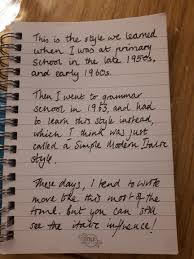 This is the style we learned
when I was at primary
school in the late 1950s,
and early 1960s.
Then I went to grammar
school in 1963, and had
to learn this style instead,
which I think was just
called a Simple Modern Italic
style.
These days, I tend to write
more like this most of the
time. But you can still
see the italic influence!